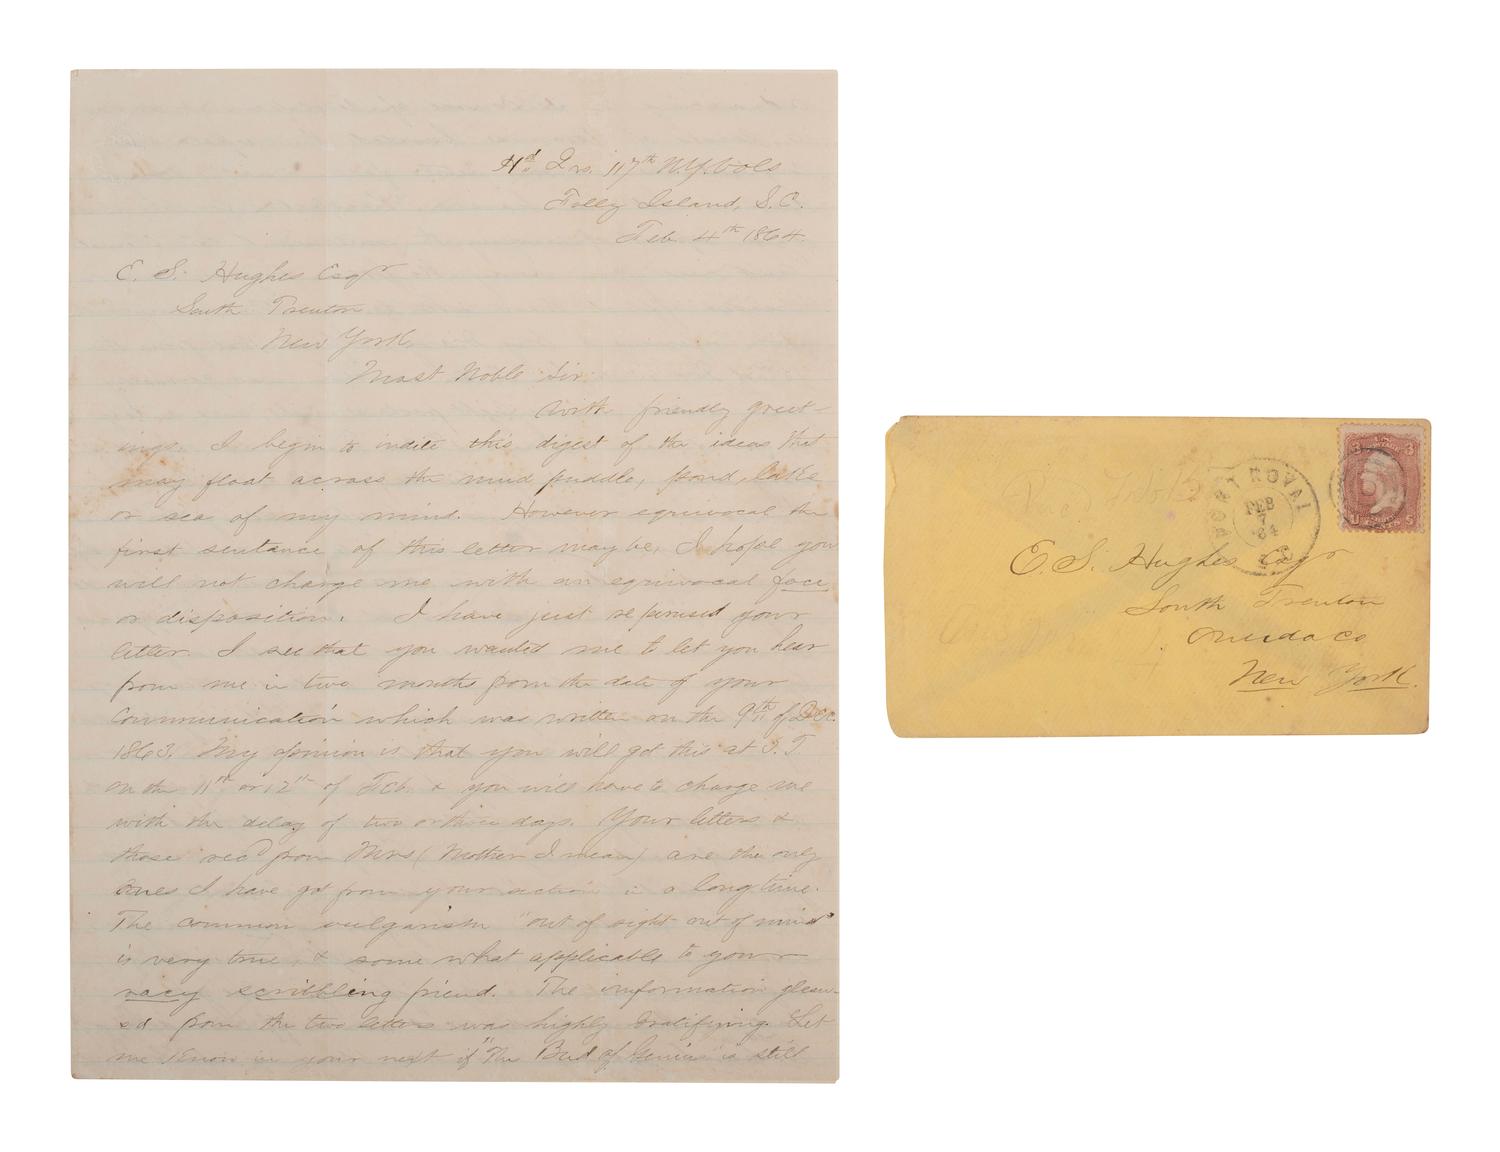 Hd Qrs. 117th N.Y. Vols
Folly Island, S.C.
Feb. 4th 1864.
E. S. Hughes Esqr
South Trenton
New York,
Most Noble Sir.
With friendly greet-
ings. I begin to indite this digest of the ideas that
may float across the mud puddle, pond, lake
or sea of my mind. However equivocal the
first sentance of this letter may be, I hope you
will not charge me with an equivocal face
or disposition. I have just reperused your
letter. I see that you wanted me to let you hear
from me in two months from the date of your
communication which was written on the 9th of Dec.
1863. My opinion is that you will get this at S.T.
on the 11th or 12th of Feb. & you will have to charge me
with the delay of two or three days. Your letters &
those recd from Mrs (Mother I mean) are the only
ones I have got from your section in a long time.
The common vulgarism "out of sight out of mind"
is very true, & some what applicable to your
racy scribbling friend. The information glean-
ed from the two letters was highly gratifying. Let
me know in your next if "The Bud of Genius" is still
PORT ROYAL
FEB
7
64
S.C.
U.S. POSTAGE
3 3
U S
CENTS
E. S. Hughes Esqr
South Trenton
Oneida Co
New York.